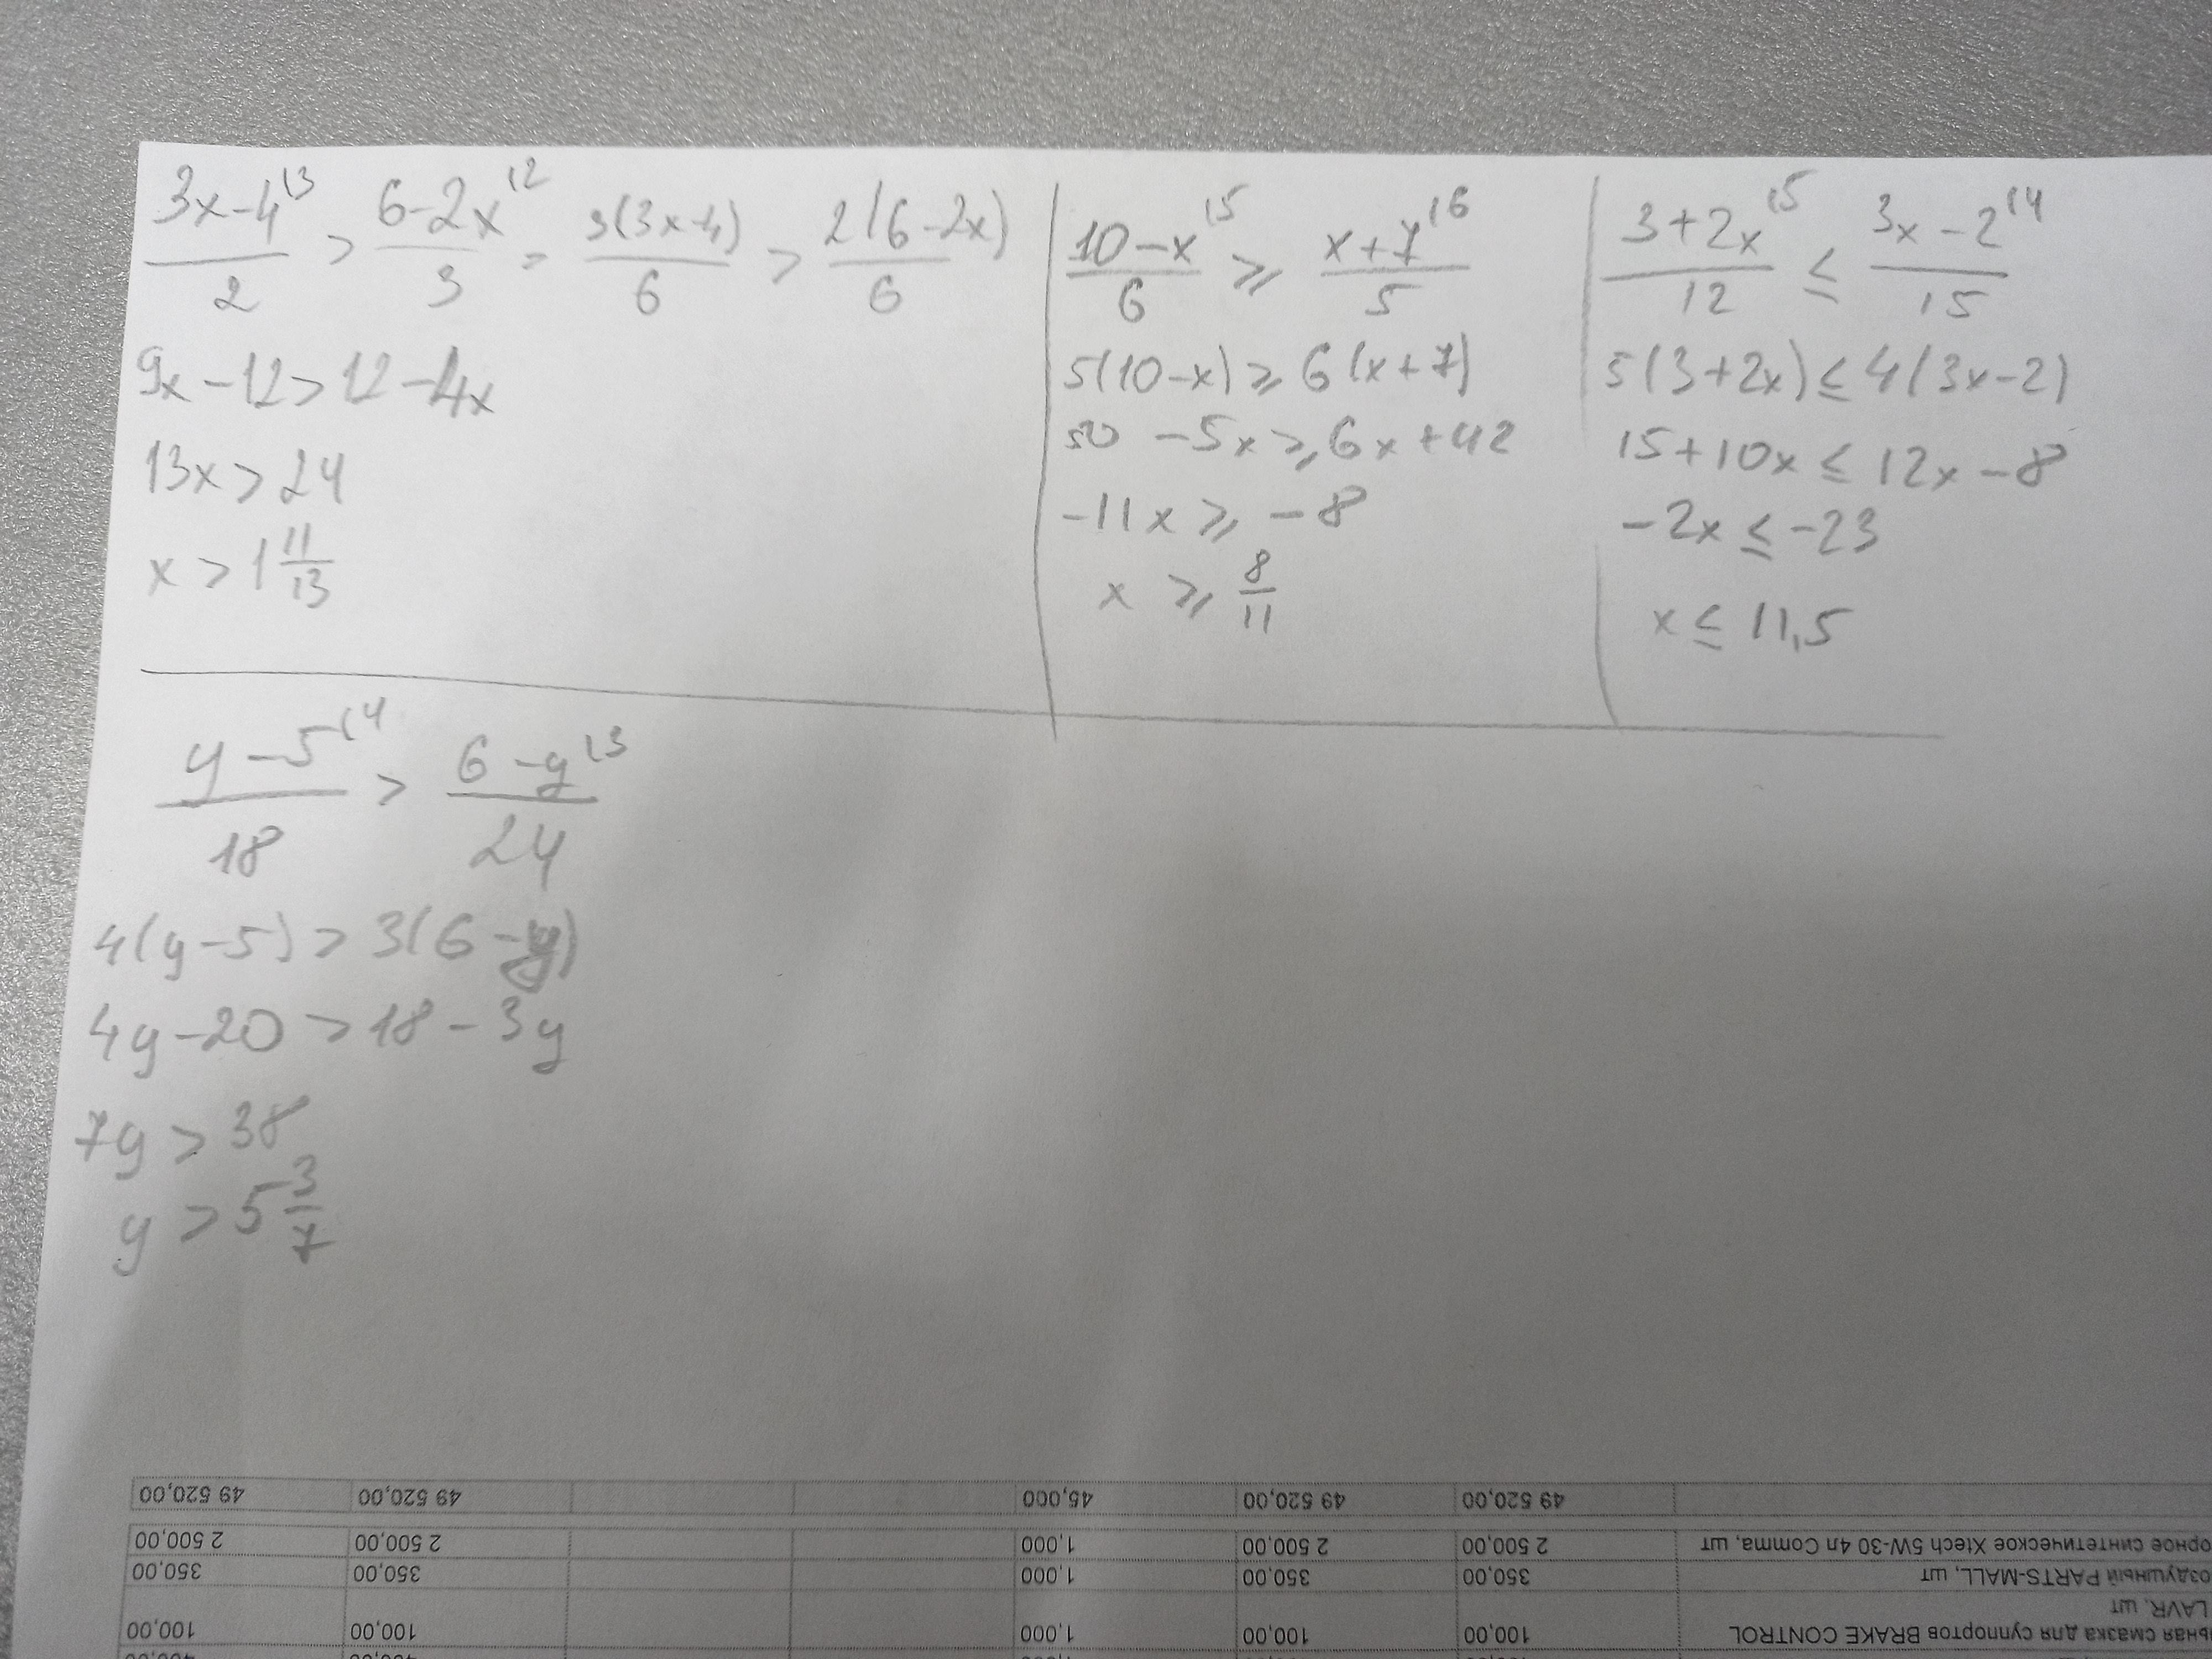 3x-4⁽³/2 > 6-2x⁽²/3 = 3(3x-4)/6 > 2(6-2x)/6
9x-12>12-4x
13x>24
x>1 11/13
10-x⁽⁵/6 ⩾ x+7⁽⁶/5
5(10-x)⩾6(x+7)
50-5x⩾6x+42
-11x⩾-8
x⩾8/11
3+2x⁽⁵/12 ≤ 3x-2⁽⁴/15
5(3+2x)≤4(3x-2)
15+10x≤12x-8
-2x≤-23
x≤11,5
y-5⁽⁴/18 > 6-y⁽³/24
4(y-5)>3(6-y)
4y-20>18-3y
7y>38
y>5 3/7
49 520,00 49 520,00 45,000 49 520,00 49 520,00
орное синтетическое Xtech 5W-30 4л Comma, шт 2 500,00 2 500,00 1,000 2 500,00 2 500,00
оздушный PARTS-MALL, шт 350,00 350,00 1,000 350,00 350,00
LAVR, шт
ьная смазка для суппортов BRAKE CONTROL 100,00 100,00 1,000 100,00 100,00